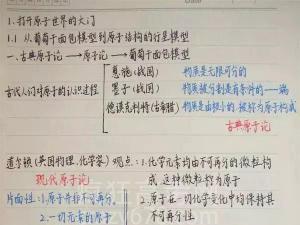 1.打开原子世界的大门
1.1 从葡萄干面包模型到原子结构的行星模型
一、古典原子论→原子论→葡萄干面包模型
惠施(战国) 物质是无限可分的
古代人们对原子的认识过程 墨子(战国) 物质被分割是有条件的——端
德谟克利特(古希腊) 物质是由极小的,被称为原子构成
古典原子论
道尔顿(英国物理、化学家) 观点:1.化学元素均由不可再分的微粒构
现代原子论 成,这种微粒称为原子
片面性:1.原子并非不可再分。 2.原子在一切化学变化中均保持其
2.一切元素的原子 不可再分性。